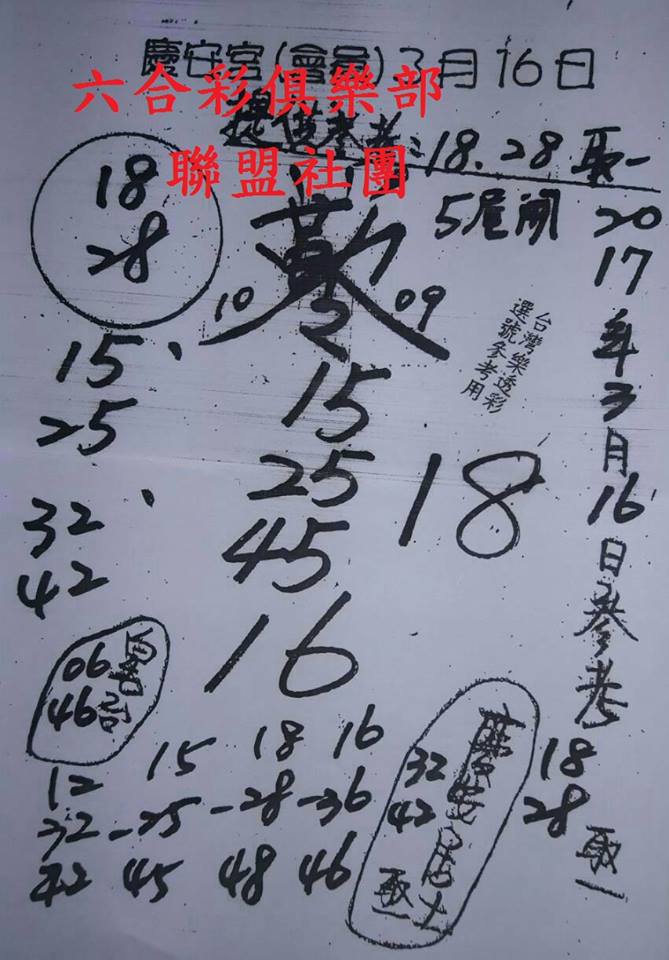 慶安宮(會員)3月16日
六合彩俱樂部
提供參考:18.28 取一
聯盟社團
5尾開
18
28
10
09
2017年3月16日參考
台灣樂透彩
選號參考用
15、
25
32、
42
15
25
45
16
18
06
46
12 15 18 16
32-25-28-36
42 45 48 46
32
42
取一
18
28
取一